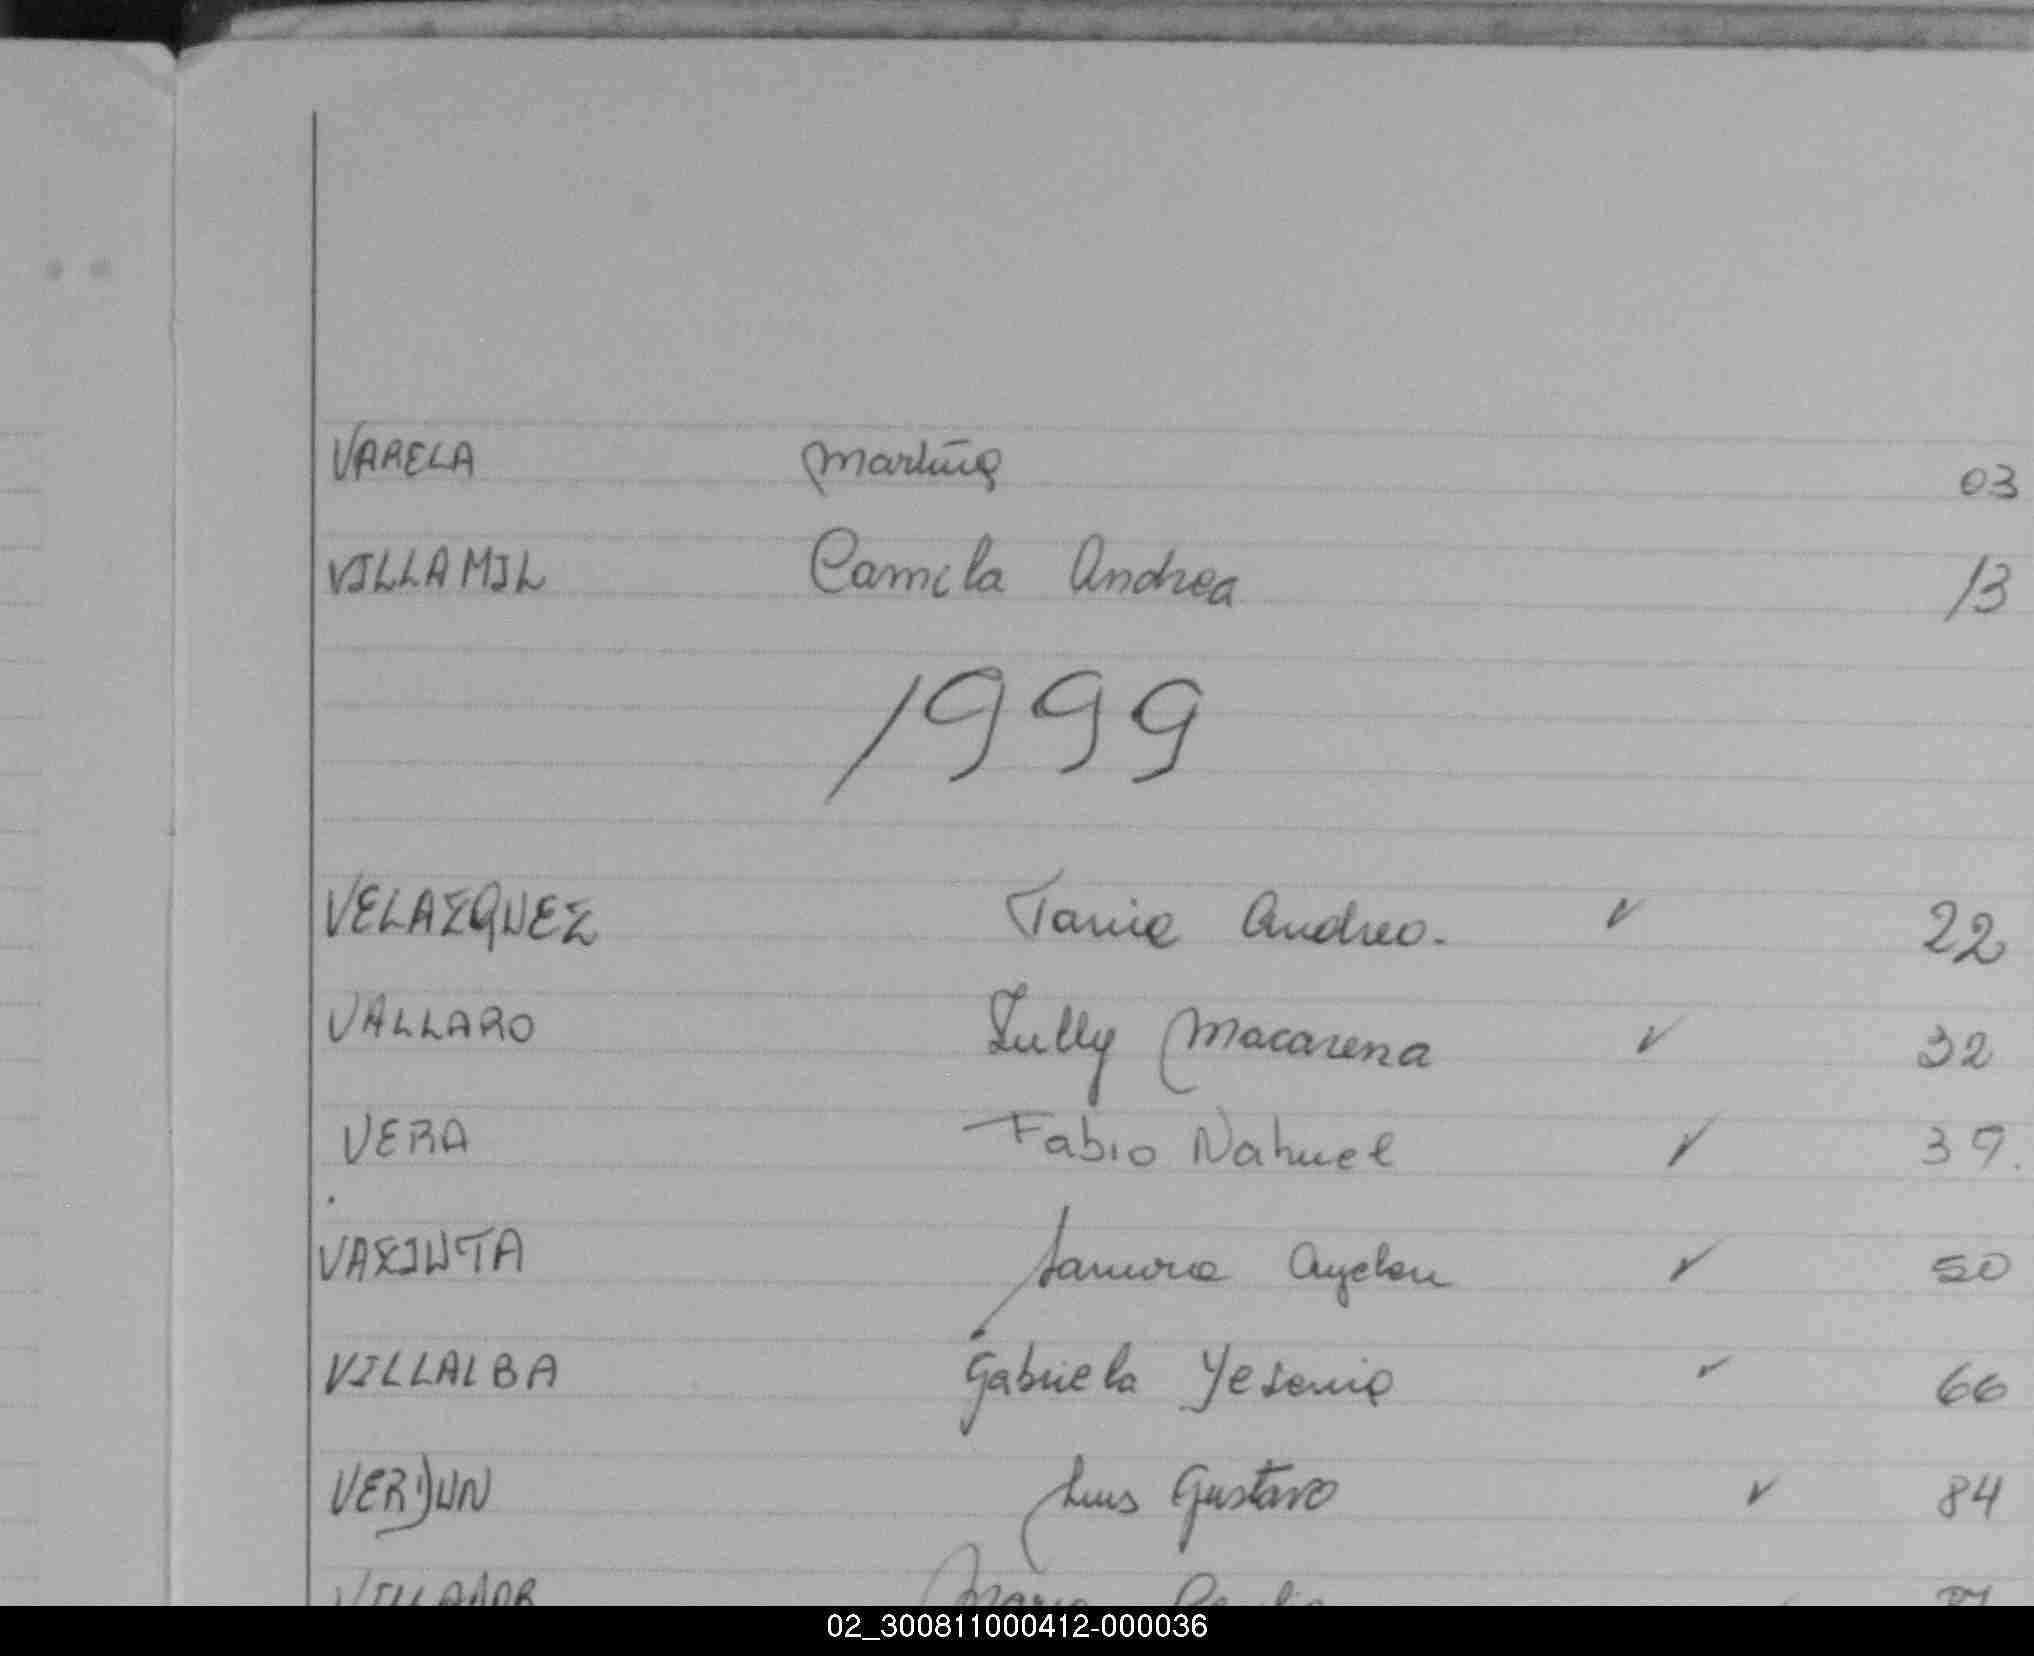 VARELA Martina 03
VILLAMIL Camila Andrea 13
1999
VELAZQUEZ Tania Andrea. ✓ 22
VALLARO Zully Macarena ✓ 32
VERA Fabio Nahuel ✓ 39.
VAZINTA ✓ 50
VILLALBA Gabriela Yesenia ✓ 66
VERDUN Luis Gustavo ✓ 84
02_300811000412-000036